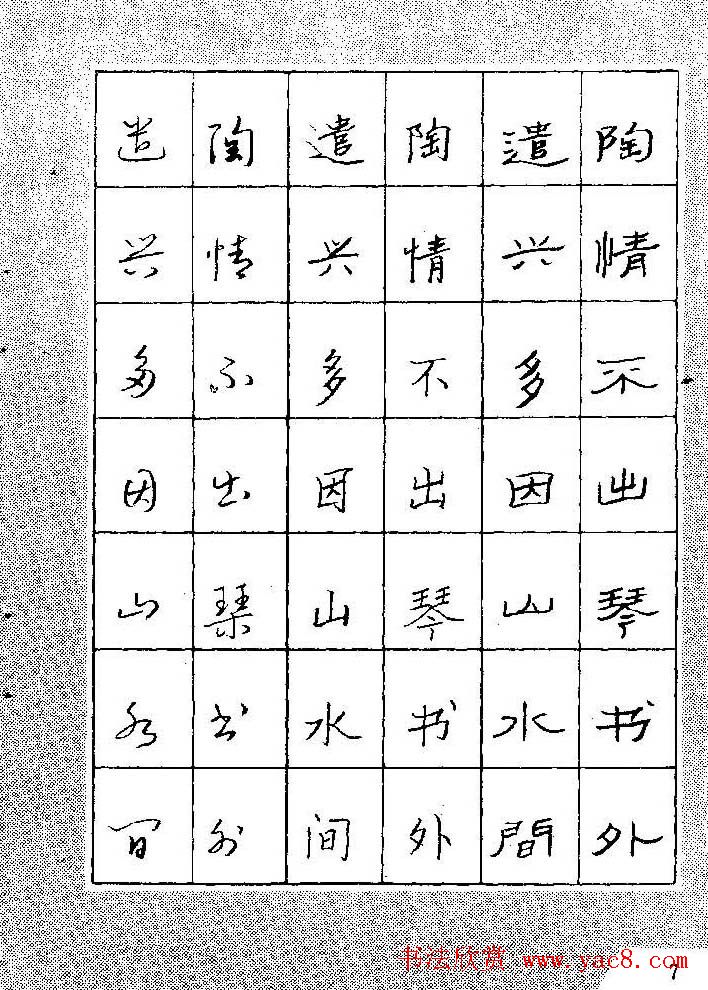 陶情不出琴书外
遣兴多因山水間
陶情不出琴书外
遣兴多因山水间
陶情不出琴书外
遣兴多因山水间
书法欣赏 www.yac8.com
7